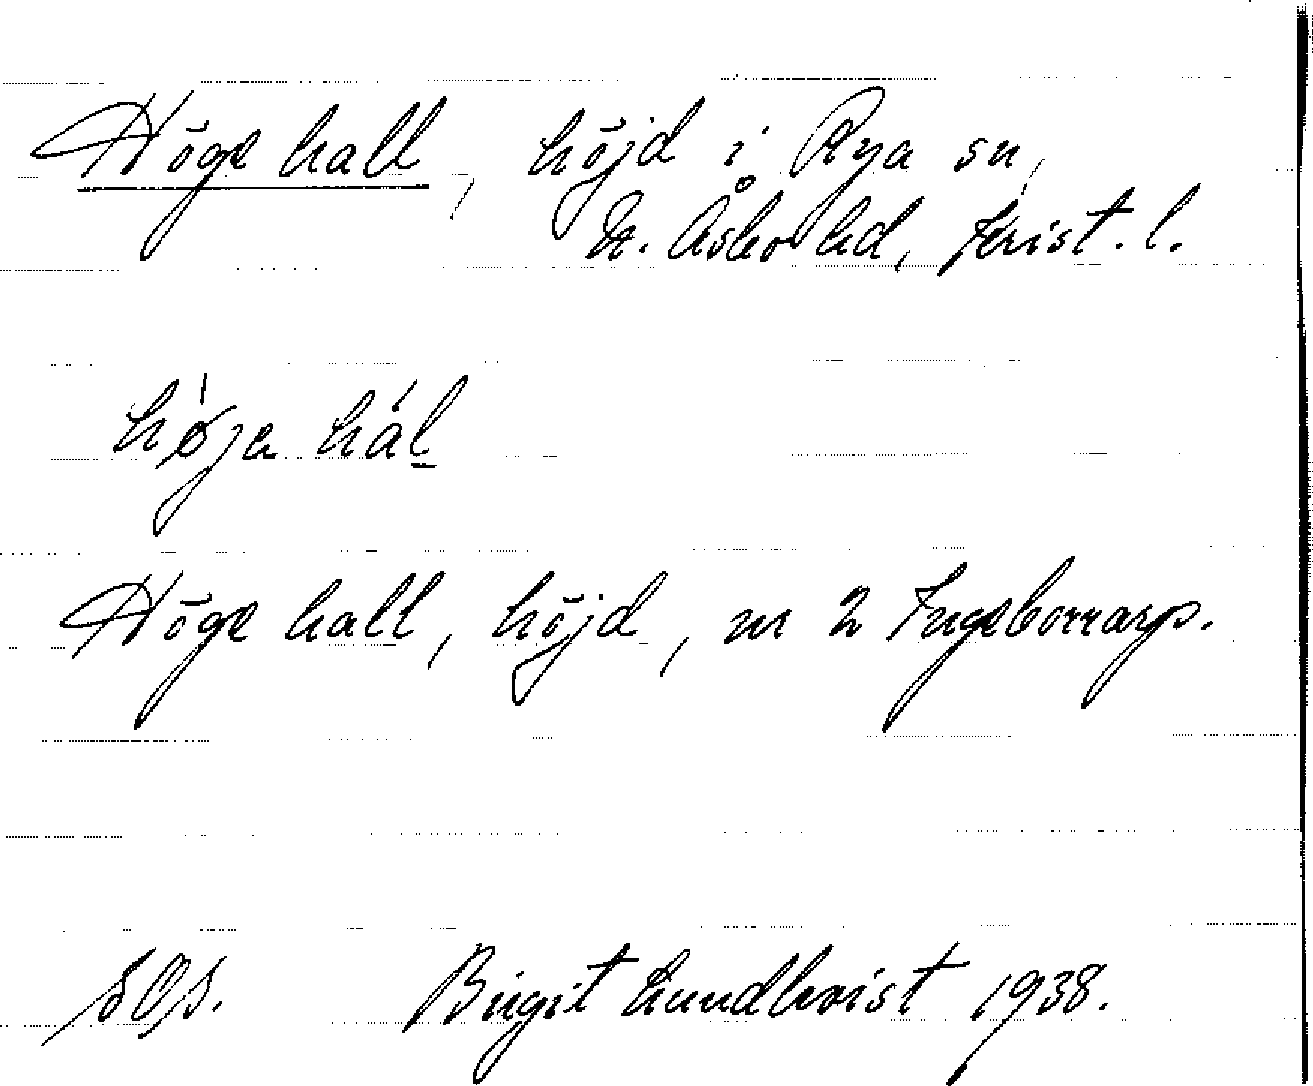 Höge hall, höjd i Rya sn,
N. Åsbo hd, Krist. l.
höja hál
Höge hall, höjd, nr 2 Ingeborrarp.
SOS. Birgit Lundkvist 1938.